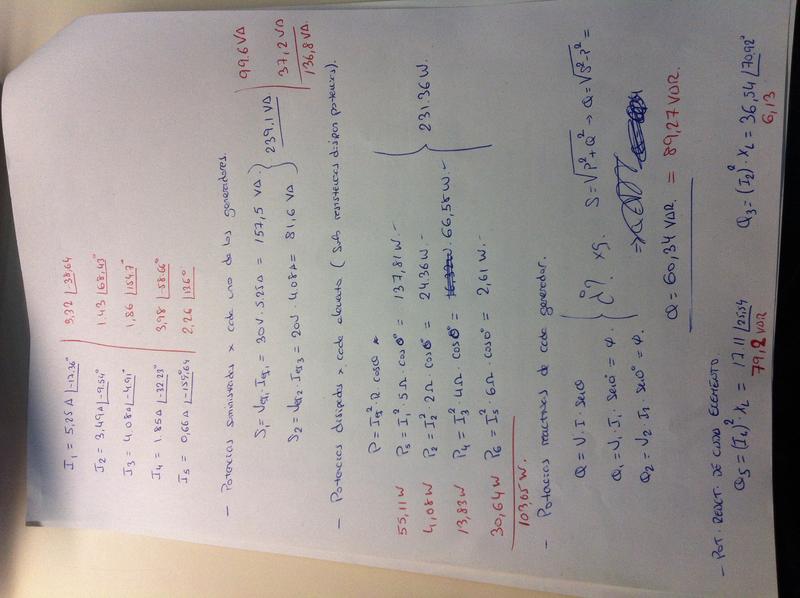 I1 = 5,25 A |-17.36° 3,32 |38,64
I2 = 3,49A |-9.54° 1.43 |68,43°
I3 = 4.08A |-4.91° 1,86 |154.7°
I4 = 1.85A |-32.23° 3,98 |-58.66°
I5 = 0,66A |-159,64 2,26 |136°
- Potencias suministradas x cada uno de los generadores.
S1 = Veq1 · Ieq1 = 30V · 5.25A = 157,5 VA. } 239,1 VA 99.6 VA
S2 = Veq2 · Ieq3 = 20V · 4.08A = 81,6 VA 37,2 VA
136,8 VA.
- Potencias disipadas x cada elemento (Solo resistencias disipan potencia).
P = Ief² · R · cosφ
55,11 W P5 = I1² · 5Ω · cos0° = 137,81 W.-
4,08 W P2 = I2² · 2Ω · cos0° = 24.36 W.-
13,83 W P4 = I3² · 4Ω · cos0° = 66,58 W.-
30,64 W P6 = I5² · 6Ω · cos0° = 2,61 W.-
231.36 W.
103,65 W.
- Potencias reactivas de cada generador.
Q = V · I · senφ S = √P²+Q² → Q = √S²-P² =
Q1 = V1 I1 · sen0° = φ.
Q2 = V2 I3 · sen0° = φ.
Q = 60,34 VAR. = 89,27 VAR.
- POT. REACT. DE CADA ELEMENTO
Q5 = (I1)² · XL = 17.11 |25.54 Q3 = (I2)² · XL = 36,54 |70,92°
79,2 VAR 6,13